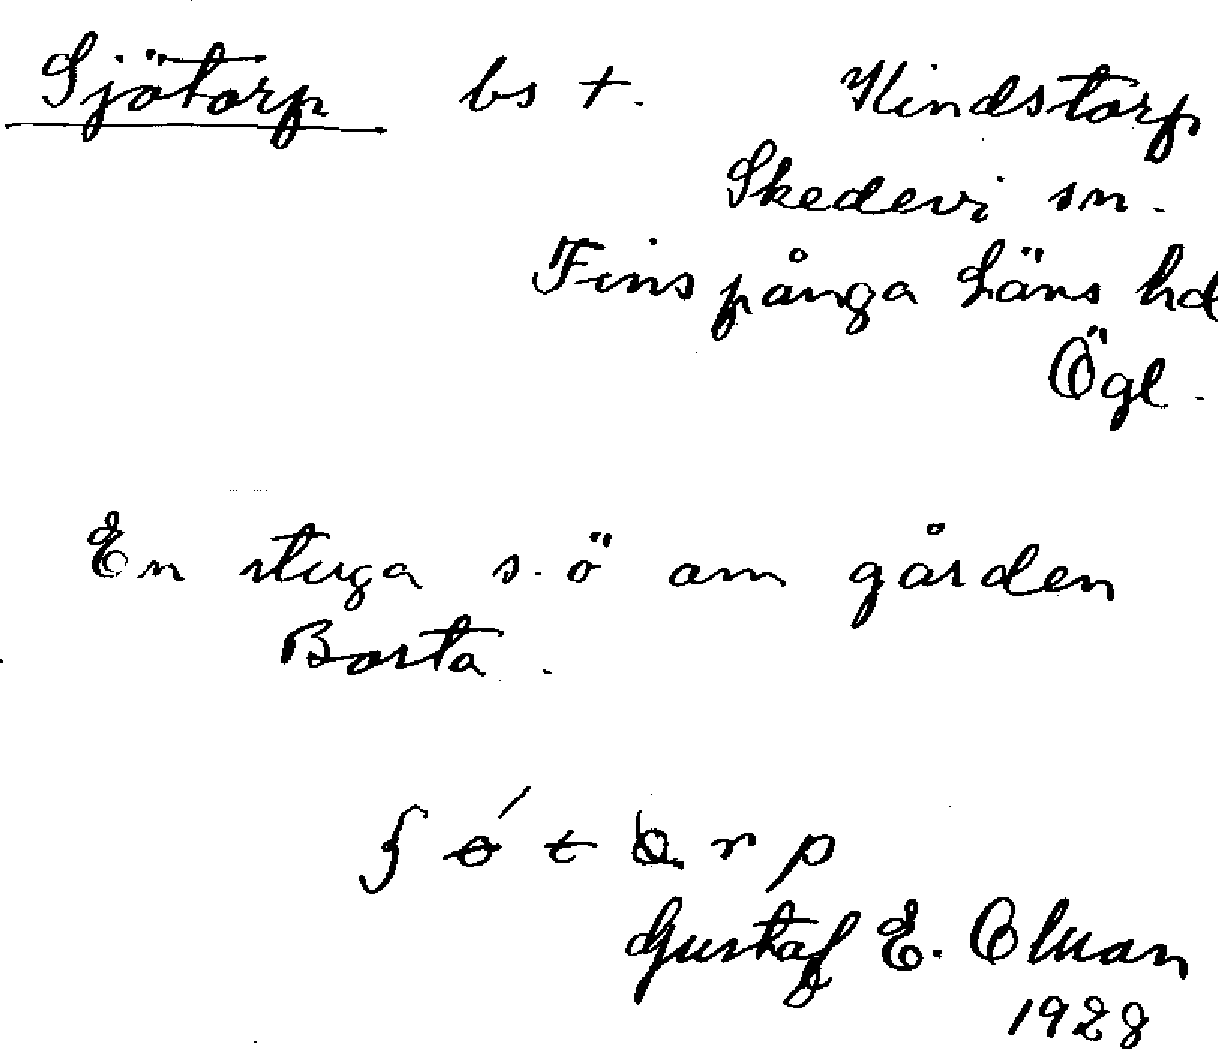 Sjötorp bs t. Kindstorp
Skedevi sn.
Finspånga Läns hd
Ögl.
En stuga s.ö om gården
Borta.
Gustaf E. Olman
1928